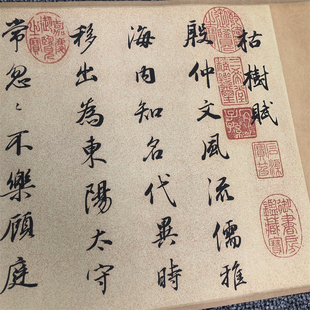 枯樹賦
殷仲文風流儒雅
海内知名代異時
移出為東陽太守
常忽忽不樂顧庭